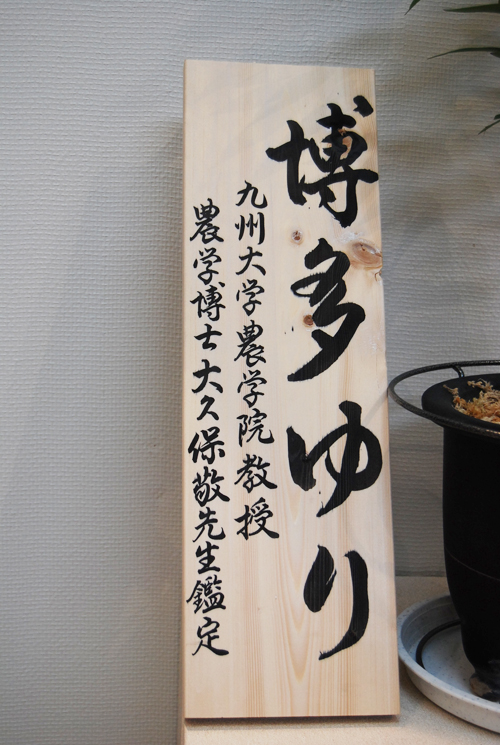 博多ゆり
九州大学農学院教授
農学博士大久保敬先生鑑定